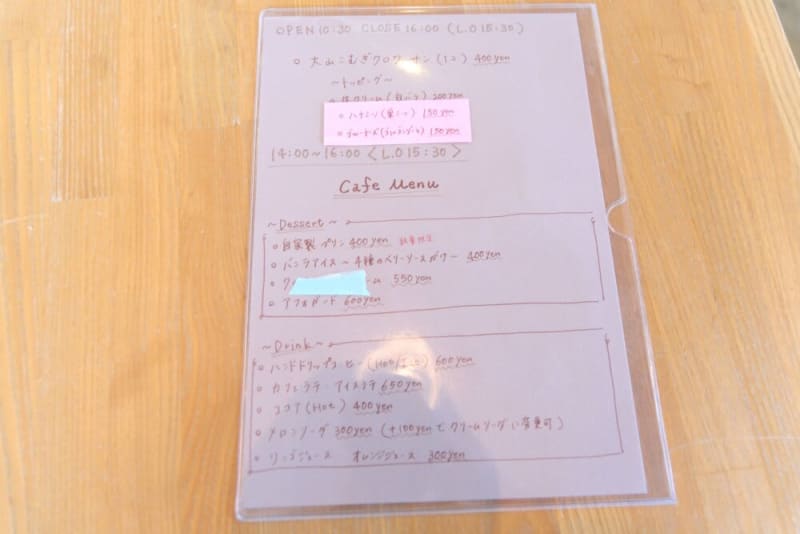 OPEN 10:30 CLOSE 16:00 (L.O 15:30)
大山こむぎクロワッサン(1コ) 400yen
〜トッピング〜
生クリーム 200yen
ハチミツ 150yen
150yen
14:00〜16:00 〈L.O 15:30〉
Cafe Menu
〜Dessert〜
自家製プリン 400yen 数量限定
バニラアイス〜4種のベリーソースがけ〜 400yen
ム 550yen
アフォガード 600yen
〜Drink〜
ハンドドリップコーヒー(Hot/ 600yen
カフェラテ アイスラテ 650yen
ココア(Hot) 400yen
メロンソーダ 300yen (+100yenでクリームソーダに変更可)
リンゴジュース オレンジジュース 300yen